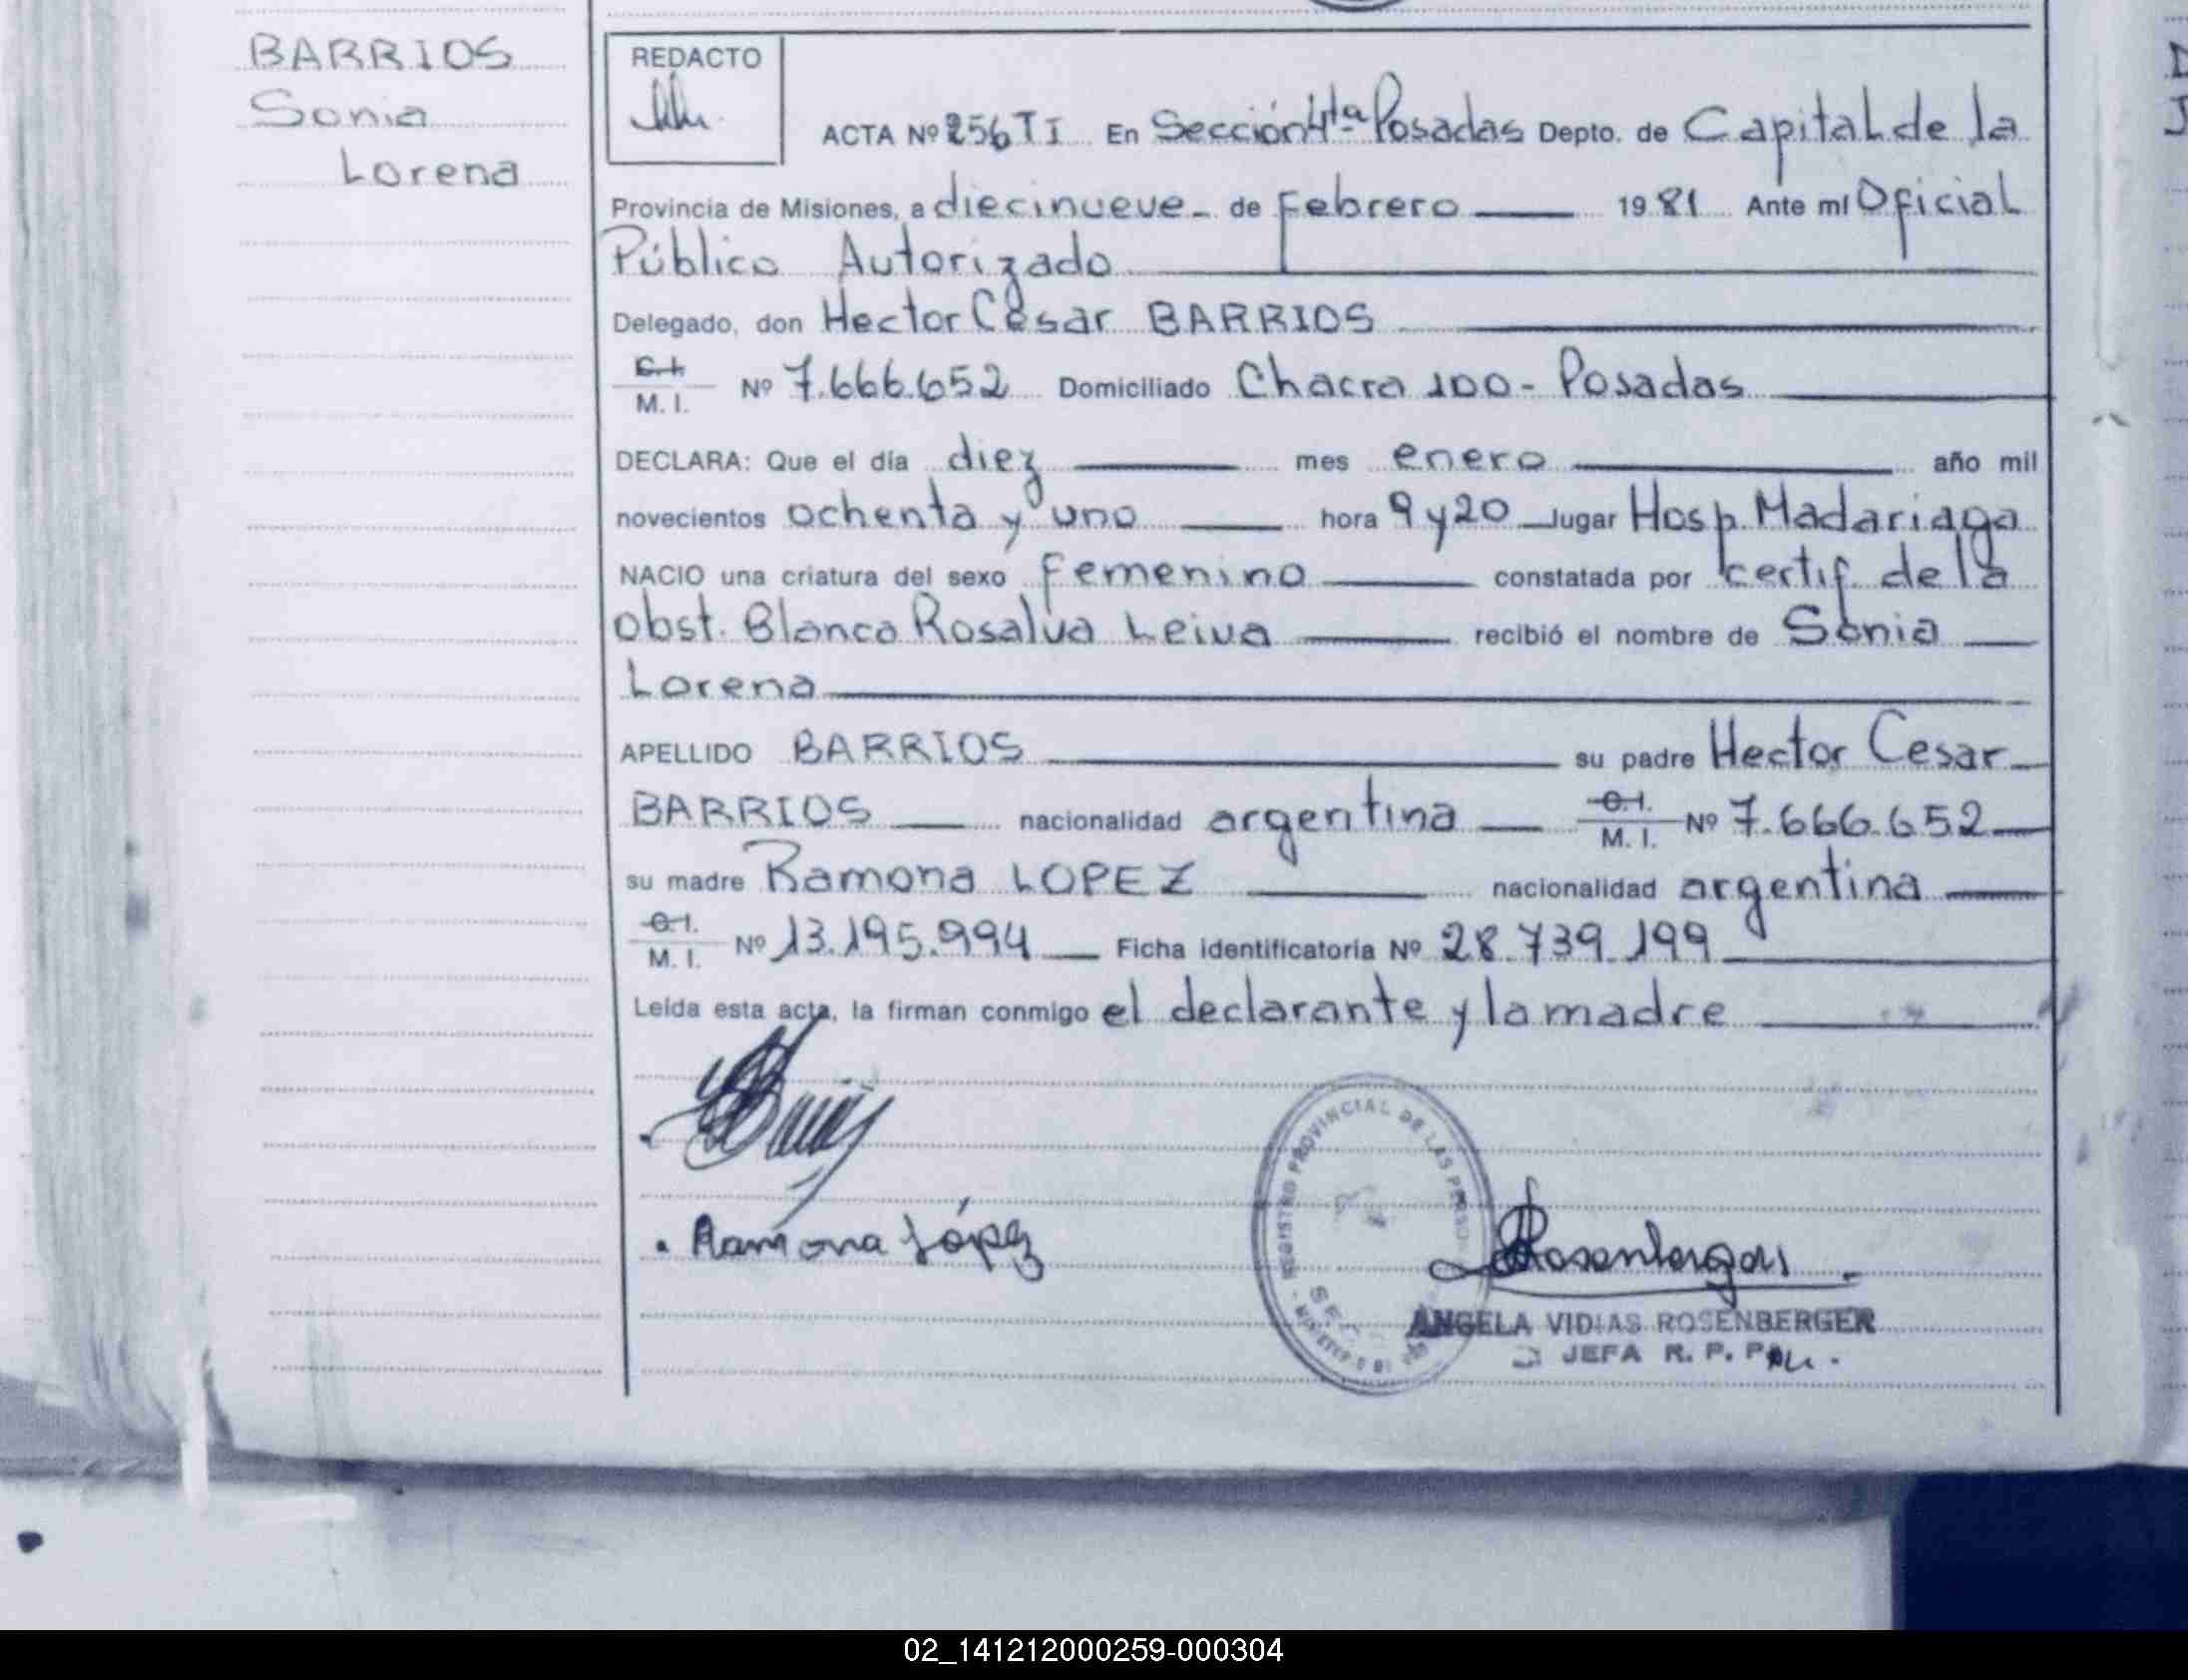 BARRIOS
Sonia
Lorena
REDACTO
ACTA Nº 256 T I En Sección 4ta Posadas Depto. de Capital de la
Provincia de Misiones, a diecinueve - de Febrero 1981 Ante mí Oficial
Público Autorizado
Delegado, don Hector César BARRIOS
C.I.
M. I. Nº 7.666.652 Domiciliado Chacra 100 - Posadas
DECLARA: Que el día diez mes enero año mil
novecientos ochenta y uno hora 9 y 20 lugar Hosp. Madariaga
NACIO una criatura del sexo femenino constatada por certif. de la
obst. Blanca Rosalva Leiva recibió el nombre de Sonia
Lorena
APELLIDO BARRIOS su padre Hector Cesar
BARRIOS nacionalidad argentina C.I.
M. I. Nº 7.666.652
su madre Ramona LOPEZ nacionalidad argentina
C.I.
M. I. Nº 13.195.994 Ficha identificatoria Nº 28.739.199
Leída esta acta, la firman conmigo el declarante y la madre
REGISTRO PROVINCIAL DE LAS PERSONAS
Ramona López
Rosenberger
ANGELA VIDIAS ROSENBERGER
JEFA R. P. P.
02_141212000259-000304